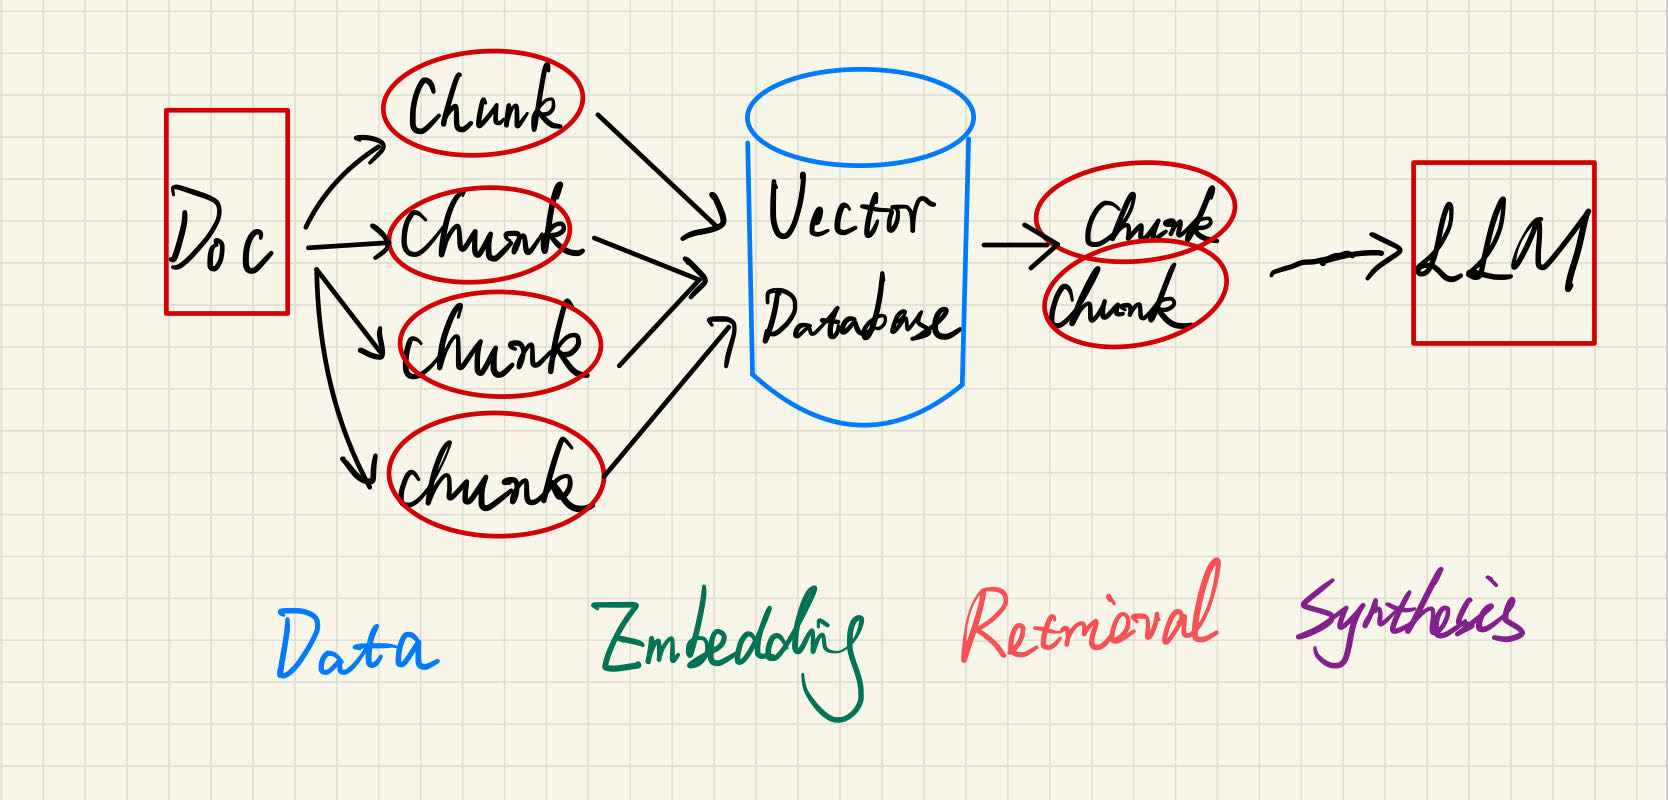 Doc
Chunk
Chunk
chunk
chunk
Vector
Database
Chunk
Chunk
LLM
Data
Embedding
Retrieval
Synthesis